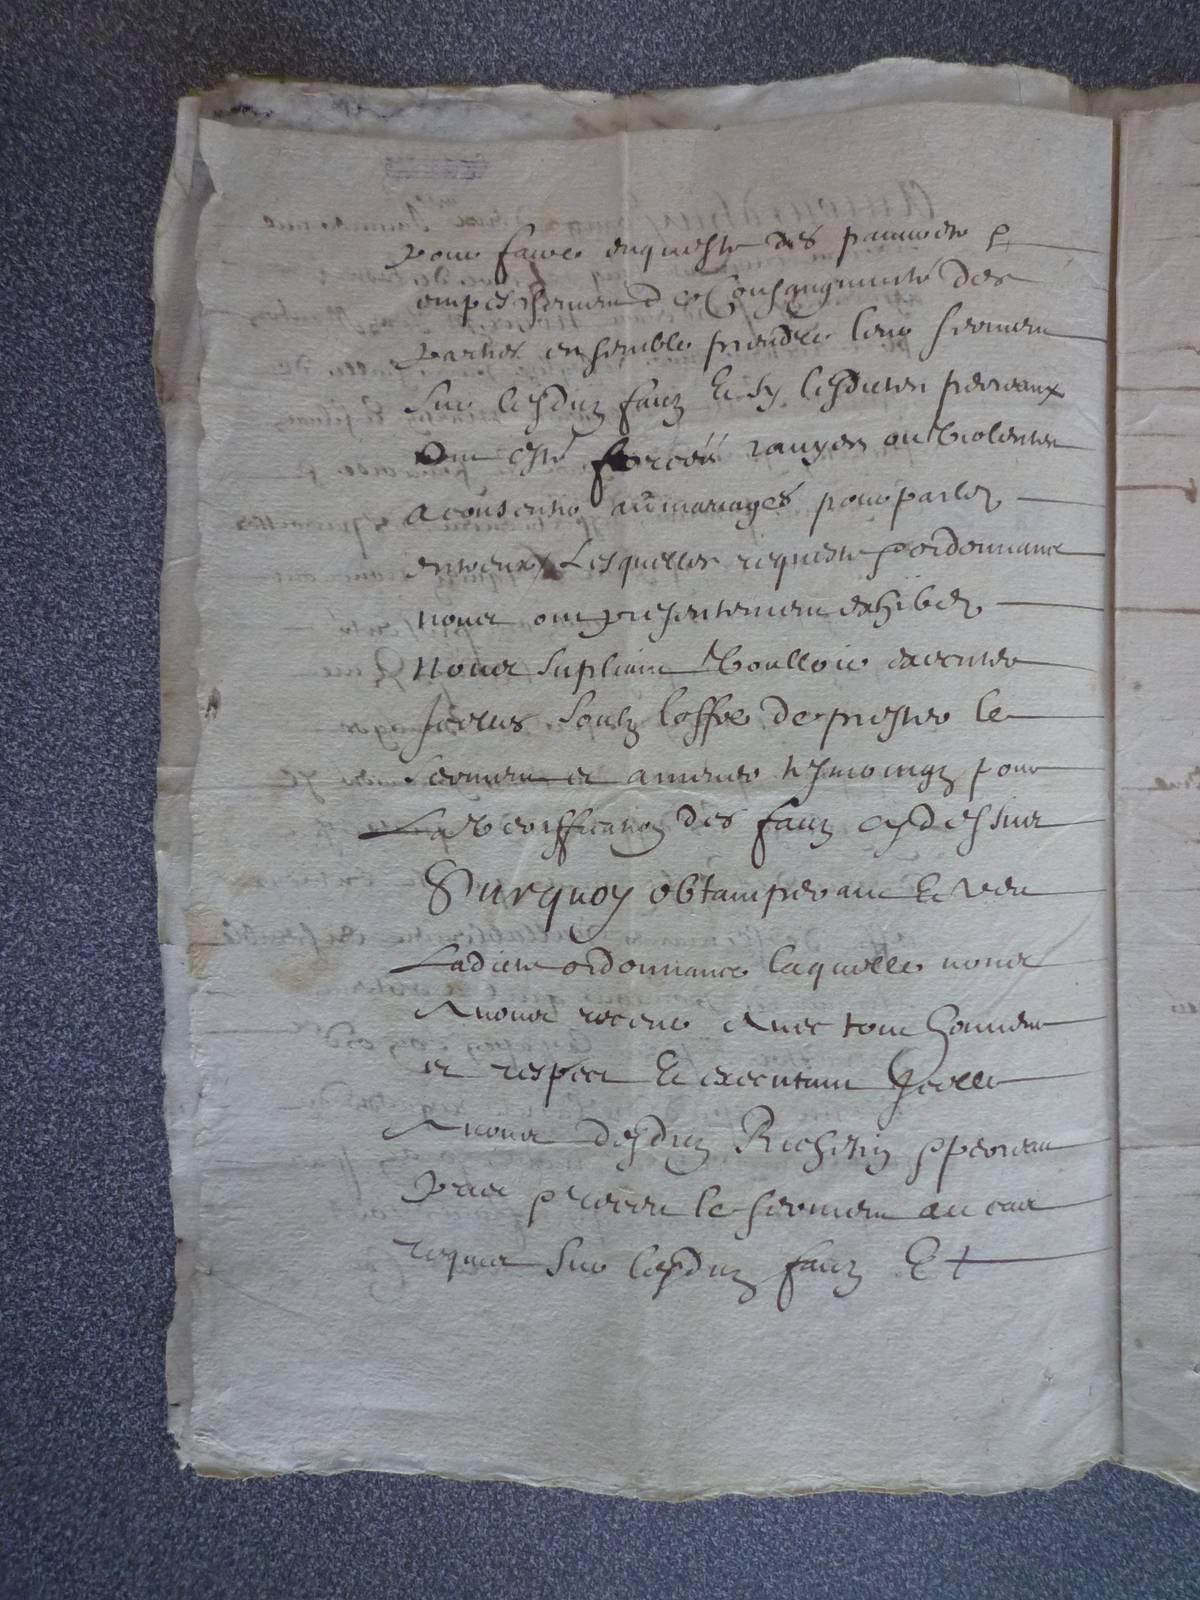 pour faire enqueste des pauvrete &
empeschement de Consanguinité des
parties ensemble prendre leur serment
sur lesditz faitz Et sy lesdictes
Ont esté forcéé ou violenter
a consentir au mariages pourparlez
entreux Lesquelles requeste & ordonnance
nous ont presentement exhibez
Nous supliant Voulloir executer
Icelles soubz loffre de prester le
serment et amener tesmoingz pour
La Veriffication des faitz cy dessus
Surquoy obtamperant Et veu
Ladicte ordonnance laquelle nous
Avons receue Avec tout honneur
et respect Et executant Icelle
Avons desditz
pris & receu le serment au cas
requis sur lesditz faitz Et